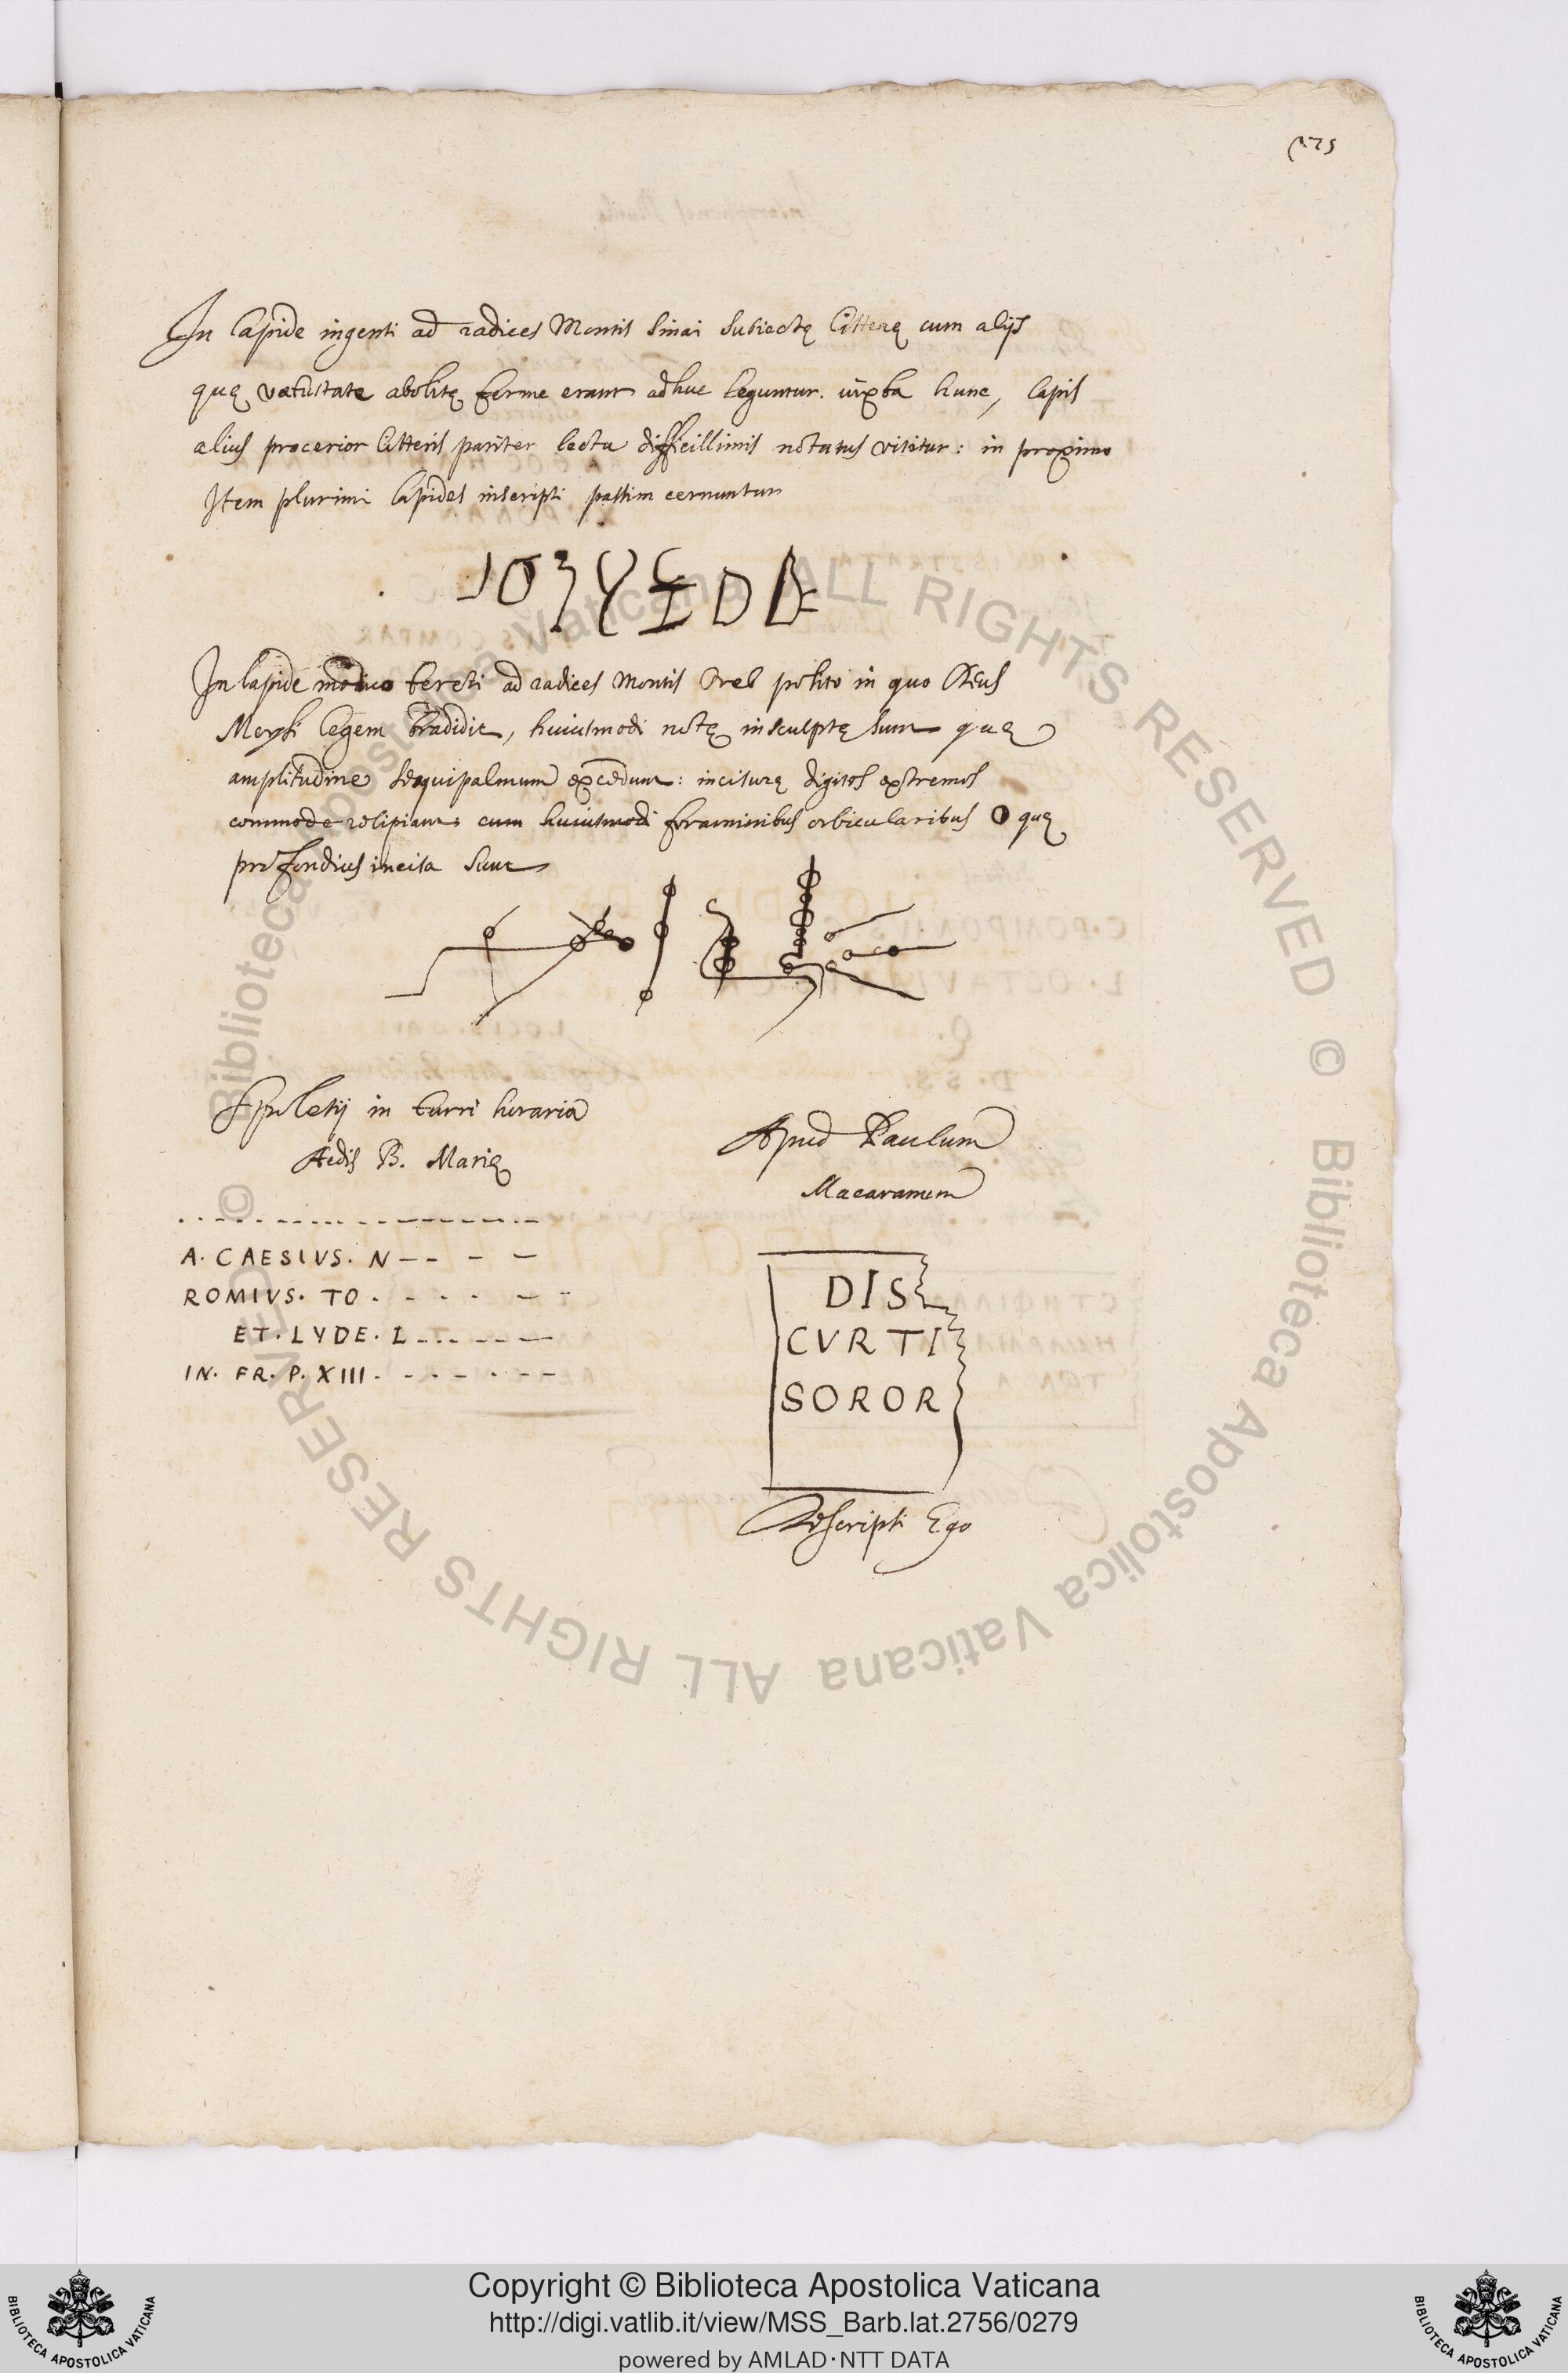 In lapide ingenti ad radices Montis Sinai subiectę litterę cum alijs
quę vetustate abolitę ferme erant adhuc leguntur. iuxta hunc, lapis
alius procerior litteris pariter lectu difficillimis notatus visitur: in proximo
Item plurimi lapides inscripti passim cernuntur
In lapide modico tereti ad radices Montis Oreb polito in quo Deus
Moysi legem tradidit, huiusmodi notę insculptę sunt quę
amplitudine sesquipalmum excedunt: incisurę digitos extremos
commode recipiant cum huiusmodi foraminibus orbicularibus O quę
profondius incisa sunt
Spoletij in turri horaria
Aedis B. Marię
A. CAESIVS. N
ROMIVS. TO
ET. LYDE. L
IN. FR. P. XIII
Apud Paulum
Macaranum
DIS
CVRTI
SOROR
Descripsi Ego
© Biblioteca Apostolica Vaticana ALL RIGHTS RESERVED © Biblioteca Apostolica Vaticana ALL RIGHTS RESERVED
BIBLIOTECA APOSTOLICA VATICANA
Copyright © Biblioteca Apostolica Vaticana
http://digi.vatlib.it/view/MSS_Barb.lat.2756/0279
powered by AMLAD·NTT DATA
BIBLIOTECA APOSTOLICA VATICANA